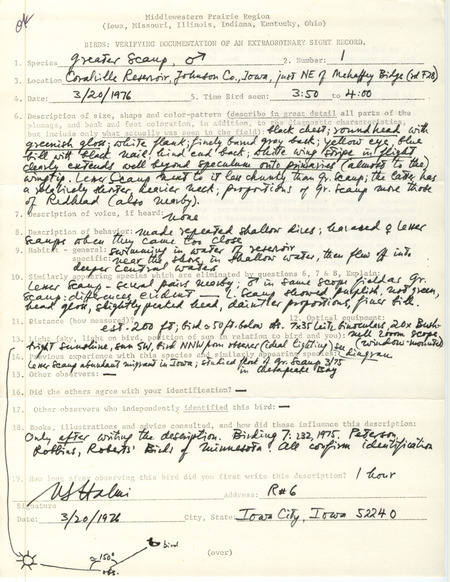 Middlewestern Prairie Region
(Iowa, Missouri, Illinois, Indiana, Kentucky, Ohio)
BIRDS: VERIFYING DOCUMENTATION OF AN EXTRAORDINARY SIGHT RECORD.
1. Species Greater Scaup, ♂ 2. Number: 1
3. Location Coralville Reservoir, Johnson Co., Iowa, just NE of Mehaffey Bridge (rd F28)
4. Date: 3/20/1976 5. Time Bird seen: 3:50 to 4:00
6. Description of size, shape and color-pattern (describe in great detail all parts of the
plumage, and beak and feet coloration, in addition to the diagnostic characteristics,
but include only what actually was seen in the field): black chest; round head with
greenish gloss; white flank; finely barred gray back; yellow eye, blue
bill with black nail; hind end black; white wing stripe in flight
clearly extends well beyond speculum onto primaries (almost to the
wingtip. Lesser Scaup next to it less chunky than Gr. Scaup; the latter has
a relatively shorter, heavier neck; proportions of Gr. Scaup more those
of Redhead (also nearby).
7. Description of voice, if heard: none
8. Description of behavior: made repeated shallow dives; harassed ♀ Lesser
Scaups when they came too close
9. Habitat - general: swimming in water of reservoir
specific: near the shore, in shallow water, then flew off into
deeper central waters
10. Similarly appearing species which are eliminated by questions 6, 7 & 8, Explain:
Lesser Scaup - several pairs nearby; ♂ in same scope field as Gr.
Scaup: differences evident — L. Scaup showed purplish, not green,
head gloss, slightly peaked head, daintier proportions, finer bill.
11. Distance (how measured)? 12. Optical equipment:
est. 200 ft; bird ≈ 50 ft. below obs. 7x35 Leitz binoculars, 20x Bush-
nell zoom scope
13. Light (sky, light on bird, position of sun in relation to bird and you): (window-mounted)
bright sunshine, sun SW, bird NNW from observer (ideal lighting) see diagram
14. Previous experience with this species and similarly appearing species:
Lesser Scaup abundant migrant in Iowa; studied flock of Gr. Scaup 3/75
in Chesapeake Bay
15. Other observers: —
16. Did the others agree with your identification? —
17. Other observers who independently identified this bird: —
18. Books, illustrations and advice consulted, and how did these influence this description:
Only after writing the description. Birding 7: 232, 1975. Peterson,
Robbins, Roberts' Birds of Minnesota. All confirm identification
19. How long after observing this bird did you first write this description? 1 hour
NS Halmi Address: R#6
Signature
Date: 3/20/1976 City, State: Iowa City, Iowa 52240
(over)
bird
≈150°
obs.